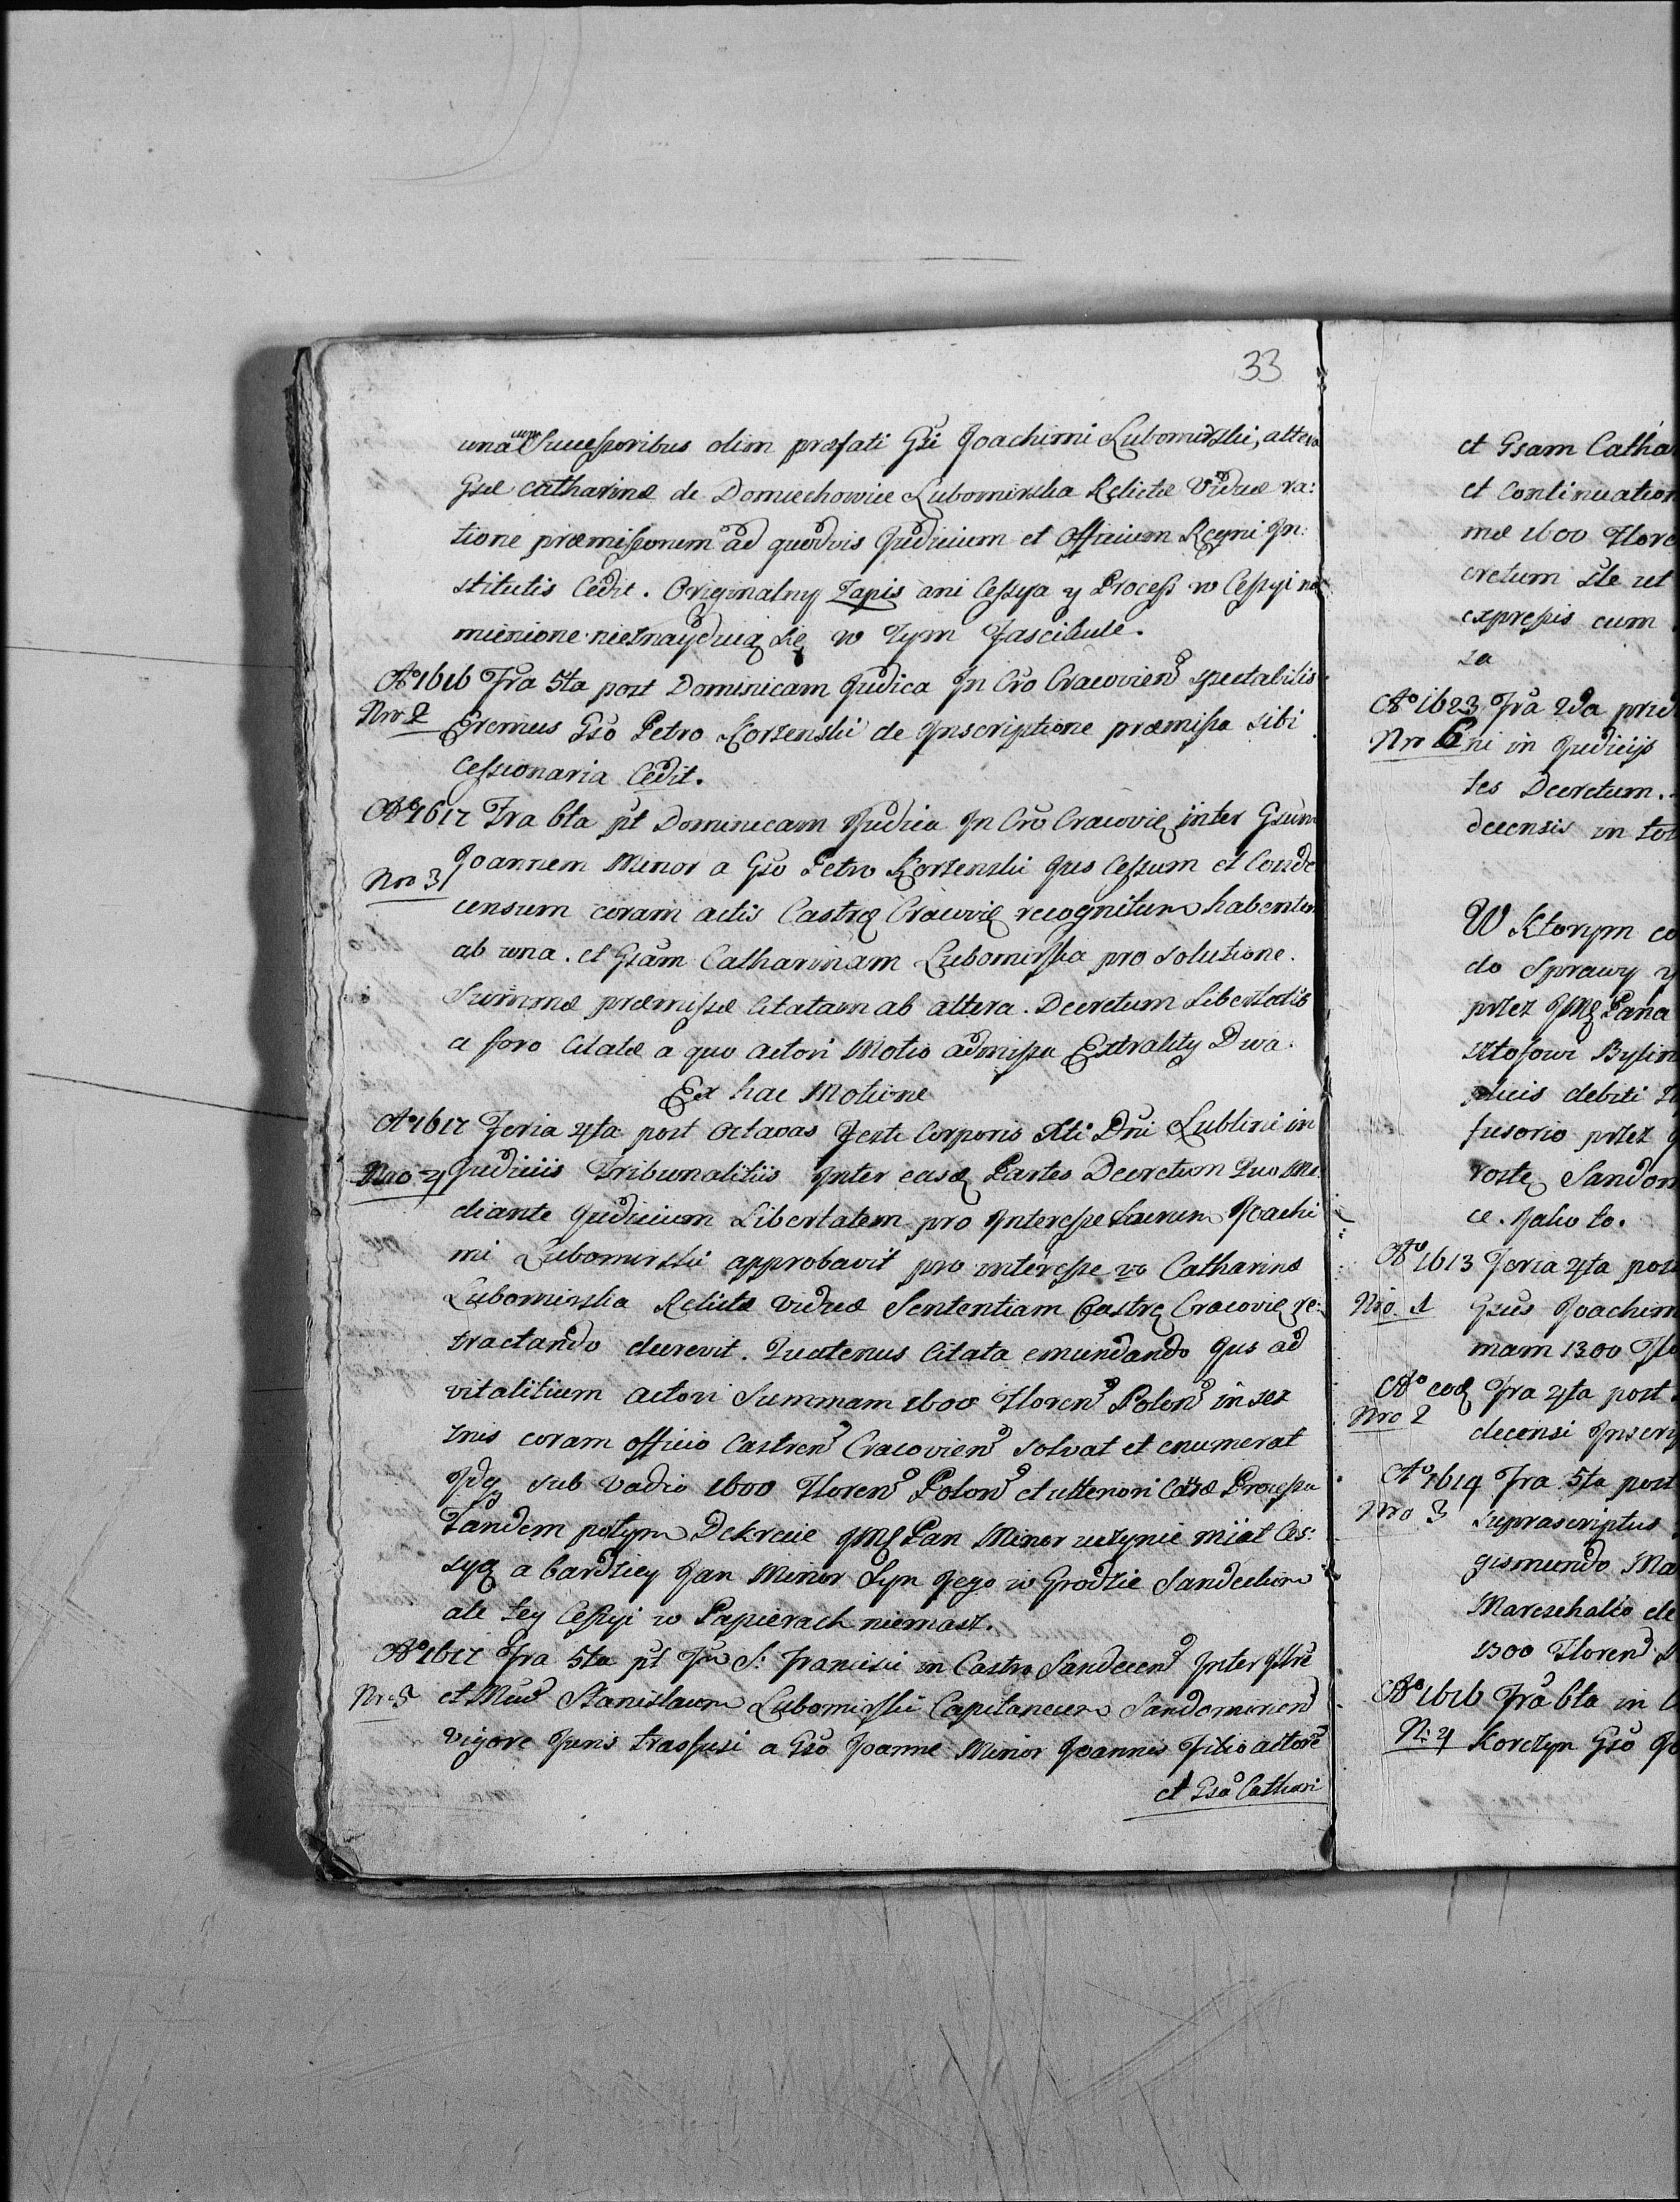 33
una cum Successoribus olim præfati Gsi Joachimi Lubomirski, altera
Gsæ Catharinæ de Domiechowice Lubomirska Relictæ Viduæ ra:
tione præmissorum ad quodvis Judicium et Officium Regni In:
stitutis Cedit. Originalny Zapis ani Cessya y Process w Cessyi na
mienione nieznayduią się w Tym Fascikule.
Aº 1616 Fra 5ta post Dominicam Judica In Cro Cracovien spectabilis
Nro 2 Eremus Gso Petro Korzenski de Inscriptione præmissa sibi
Cessionaria Cedit.
Aº 1617 Fra 6ta pt Dominicam Judica In Cro Cracovię inter Gsum
Nro 3 Joannem Minor a Gso Petro Korzenski Jus Cessum et Conde
censum coram actis Castrę Cracovię recognitum habentem
ab una. et Gsam Catharinam Lubomirska pro solutione.
Summæ præmissæ Citatam ab altera. Decretum Libertatis
a foro Citatæ a quo actori Motio admissa Extrakty Dwa.
Ex hac Motione
Aº 1617 Feria 4ta post Octavas Festi Corporis Xti Dni Lublini in
Nro 4 Judiciis Tribunalitiis Inter easdę Partes Decretum Quo Me
diante Judicium Libertatem pro Interesse Joachi
mi Lubomirski approbavit pro interesse vo Catharinæ
Lubomirska Relictæ viduæ Sententiam Castrę Cracovię re:
tractando decrevit. Quatenus Citata emundando Jus ad
vitalitium actori Summam 1600 Floren Polon in sex
znis coram officio Castren Cracovien solvat et enumerat
Idq sub vadio 1600 Floren Polon et ulteriori Processu
Tandem po tym Dekrecie JMć Pan Minor uczynić miał Ces:
syą a bardziey Jan Minor Syn Jego w Grodzie Sandeckim
ale tey Cessyi w Papierach niemasz.
Aº 1617 Fra 5ta pt Fm S: Francisci in Castro Sandecen Inter Illre
Nro 5 et Mcū Stanislaum Lubomirski Capitaneum Sandomirien
vigore Juris trasfusi a Gso Joanne Minor Joannis Filio actore
et Gsa Cathari
et Gsam Catha
et Continuation
mæ 1600 Flore
cretum ut
expressis cum
za
Aº 1623 Fra 2da prid
Nro 6 ni in Judicijs
tes Decretum.
decensis in to
W Ktorym co
do Sprawy y
przez JMę Pana
sztofowi
debiti
fusorio przez
rostę Sandom
ce. Jako to.
Aº 1613 Feria 4ta post
Nro. 1 Gsus Joachim
mam 1300 Flo
Aº eodę Fra 4ta post
Nro 2 decensi Inscri
Aº 1614 Fra 5ta post
Nro 3 Suprascriptus
gismundo Ma
Marschalio
1300 Floren
Aº 1616 Fra 6ta in
N: 4 Korczyn Gso Jo